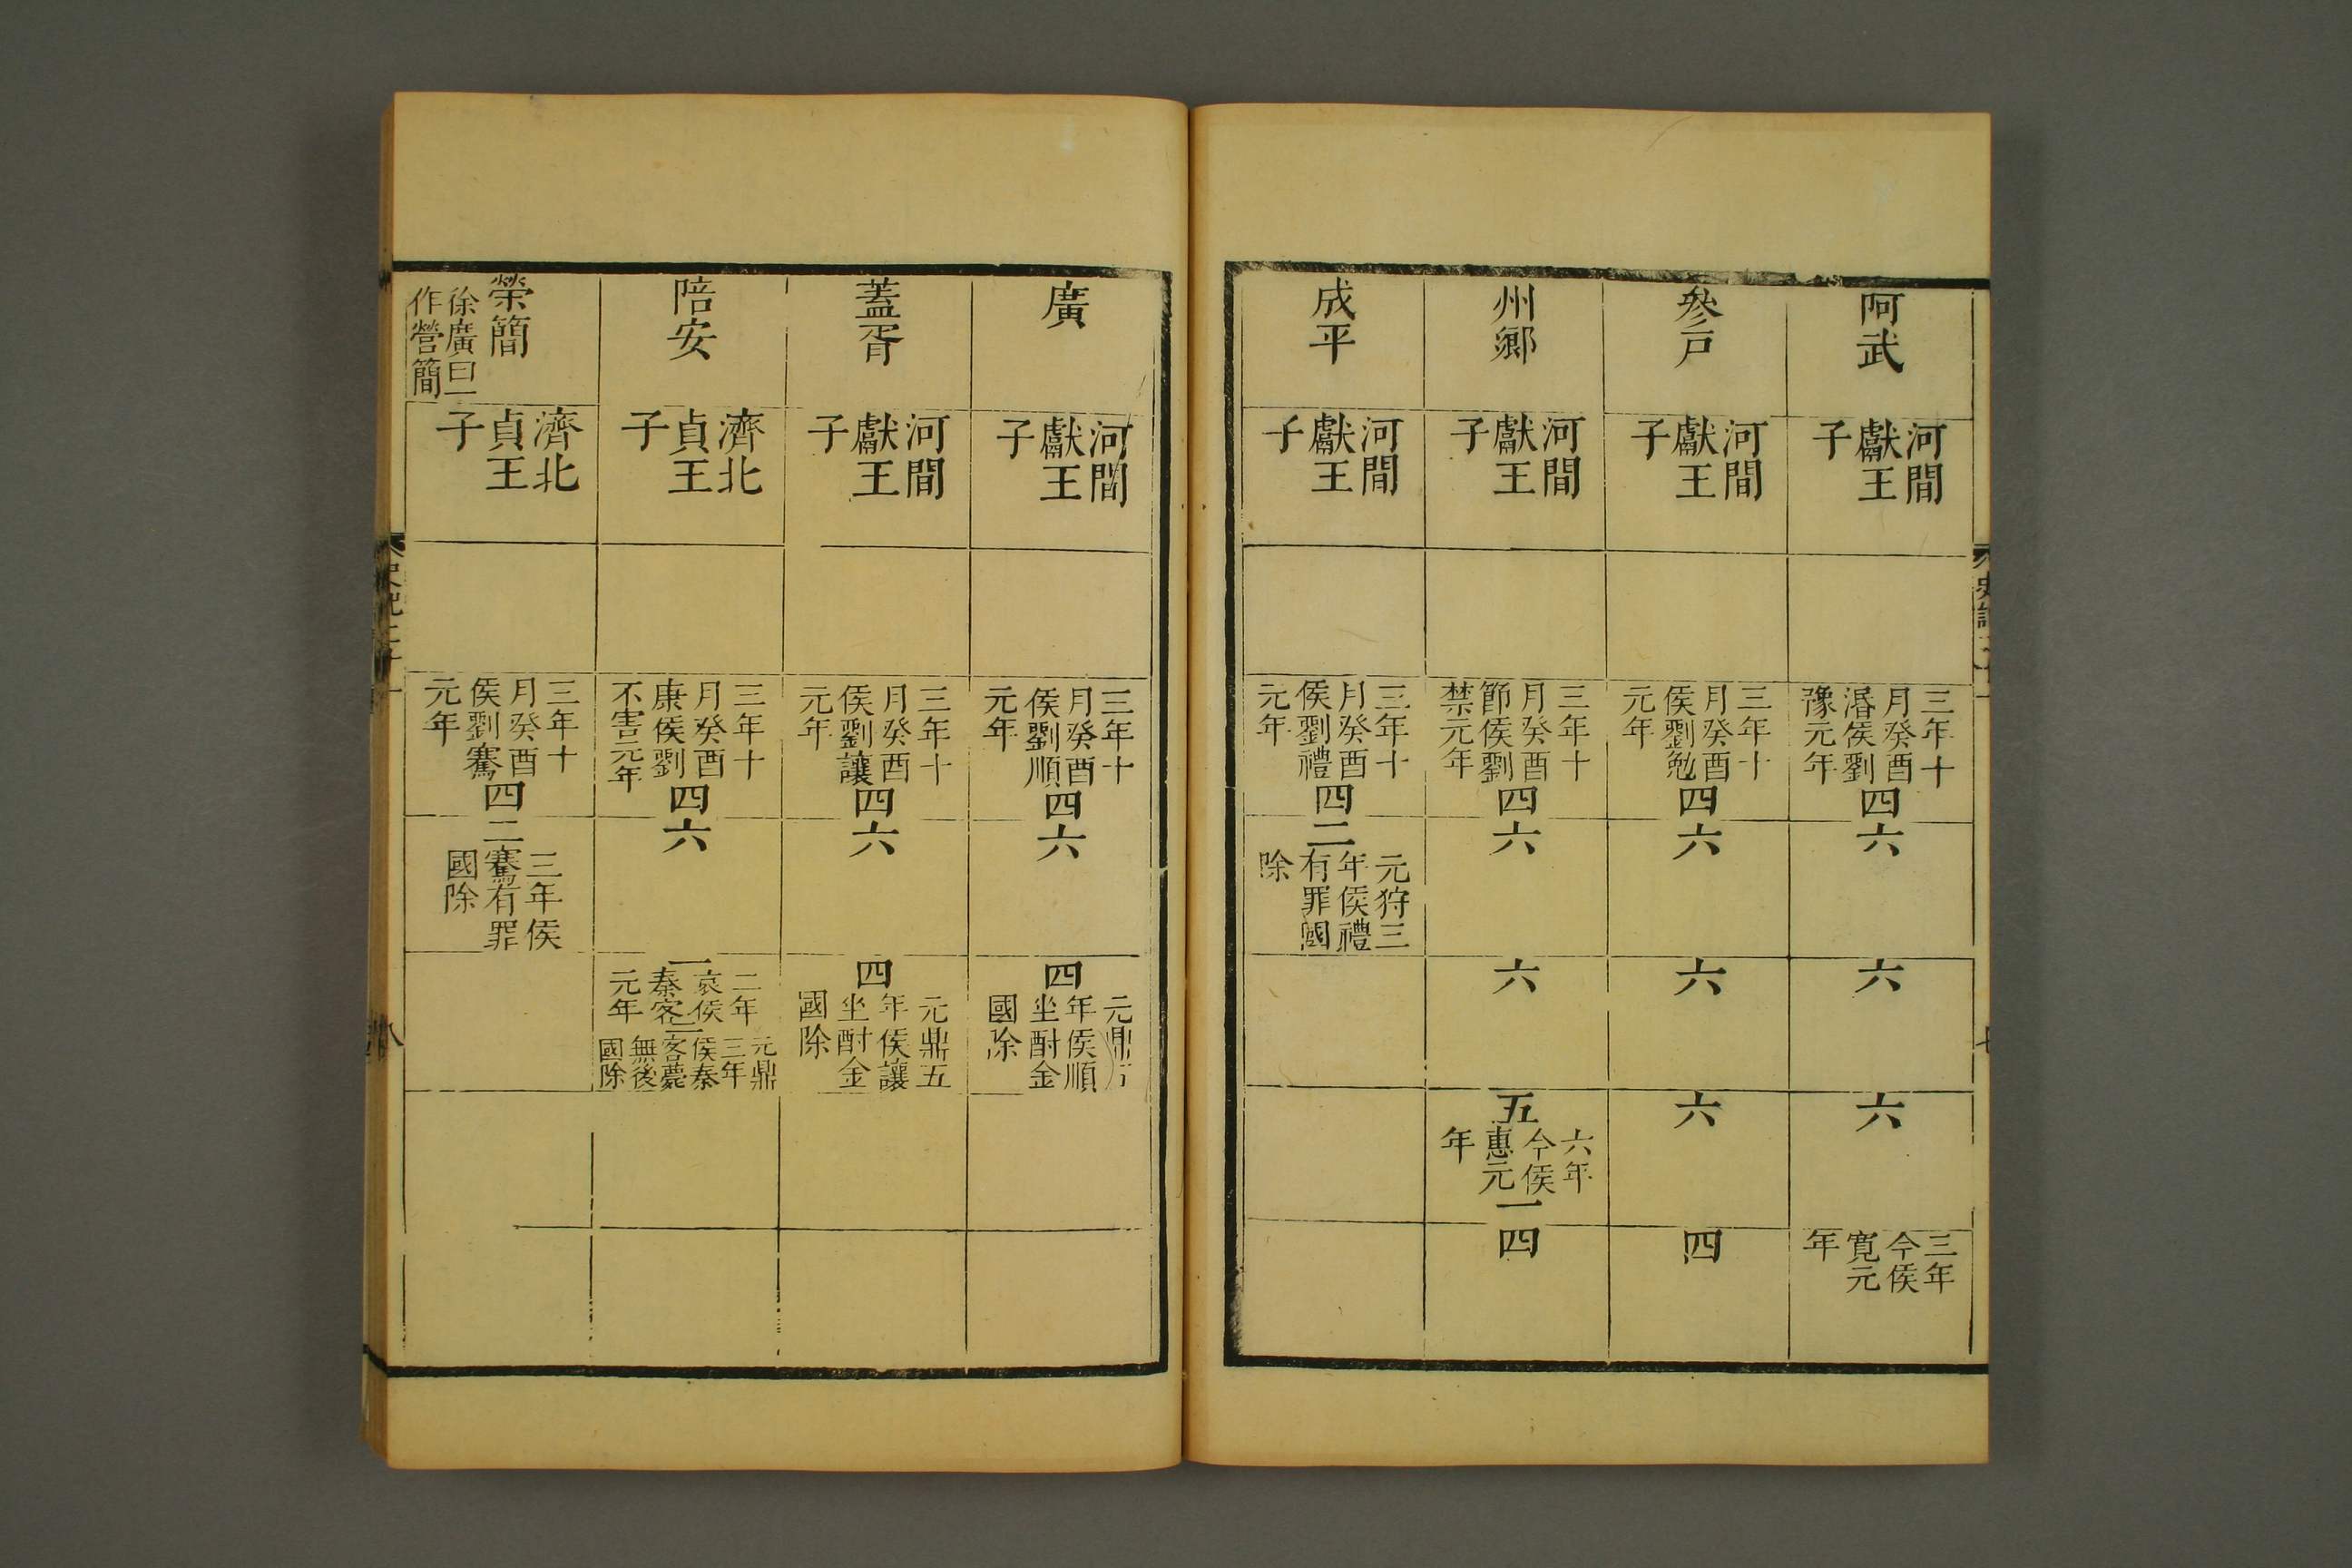 阿武
河間
獻王
子
三年十
月癸酉
湣侯劉
豫元年
四
六
六
六
三年
今侯
寬元
年
參戶
河間
獻王
子
三年十
月癸酉
侯劉勉
元年
四
六
六
六
四
州鄉
河間
獻王
子
三年十
月癸酉
節侯劉
禁元年
四
六
六
五
六年
今侯
惠元
年
一
四
成平
河間
獻王
子
三年十
月癸酉
侯劉禮
元年
四
二
元狩三
年侯禮
有罪國
除
廣
河間
獻王
子
三年十
月癸酉
侯劉順
元年
四
六
四
元鼎
年侯順
坐酎金
國除
蓋胥
河間
獻王
子
三年十
月癸酉
侯劉讓
元年
四
六
四
元鼎五
年侯讓
坐酎金
國除
陪安
濟北
貞王
子
三年十
月癸酉
康侯劉
不害元年
四
六
一
二年
哀侯
秦客
元年
二
元鼎
三年
侯秦
客薨
無後
國除
榮簡
徐廣曰一
作營簡
濟北
貞王
子
三年十
月癸酉
侯劉騫
元年
四
二
三年侯
騫有罪
國除
八